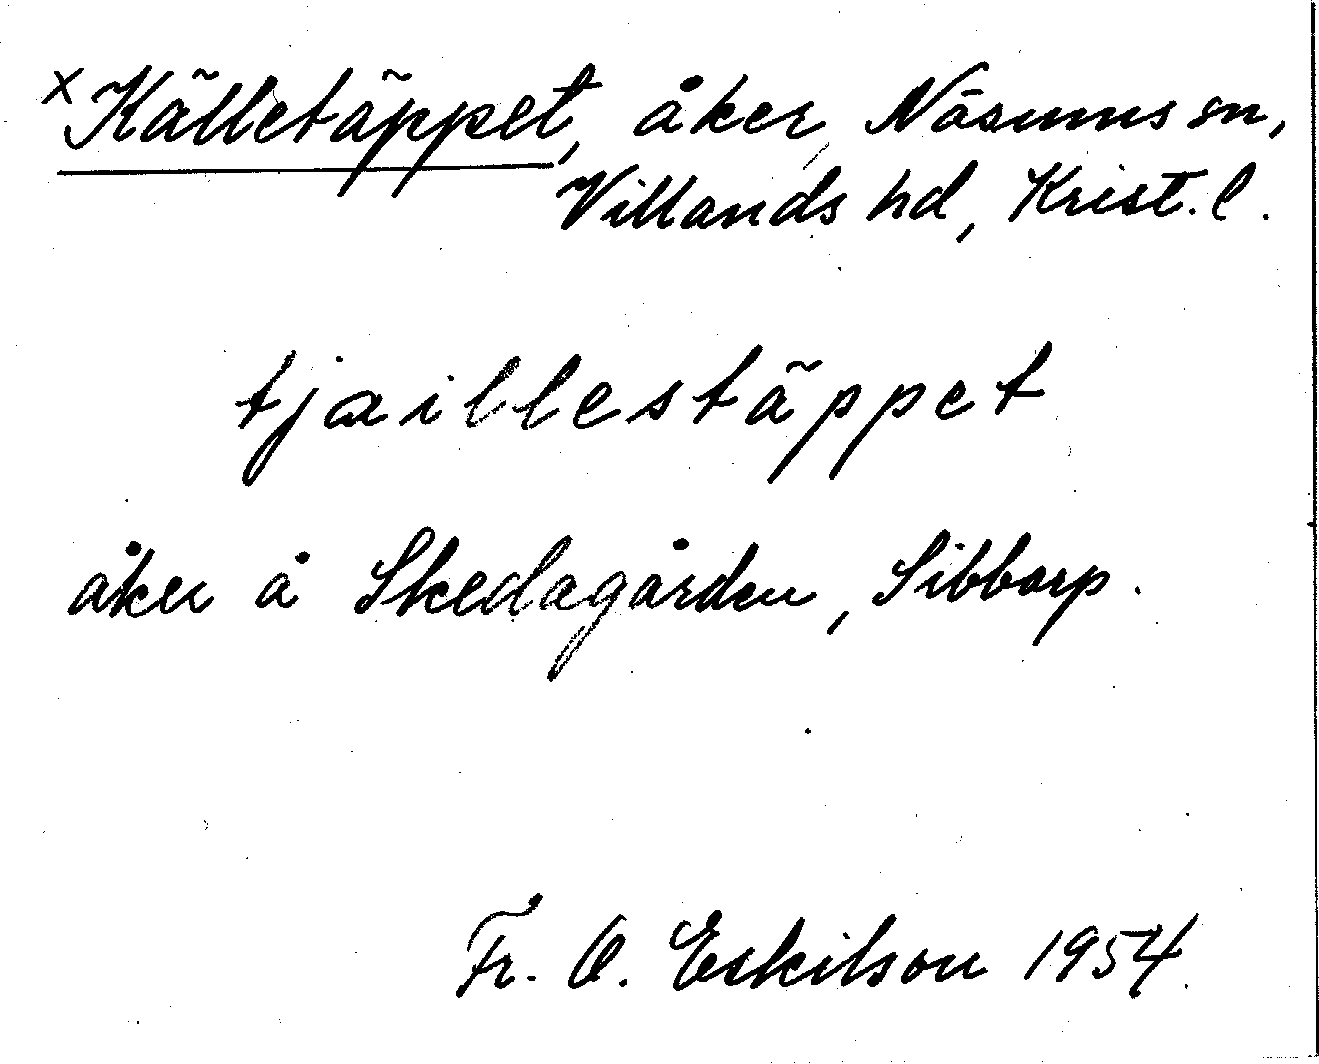 x Källetäppet, åker, Näsums sn,
Villands hd, Krist. l.
tjaillestäppet
åker å Skedagården, Sibbarp.
Fr. O. Eskilson 1954.